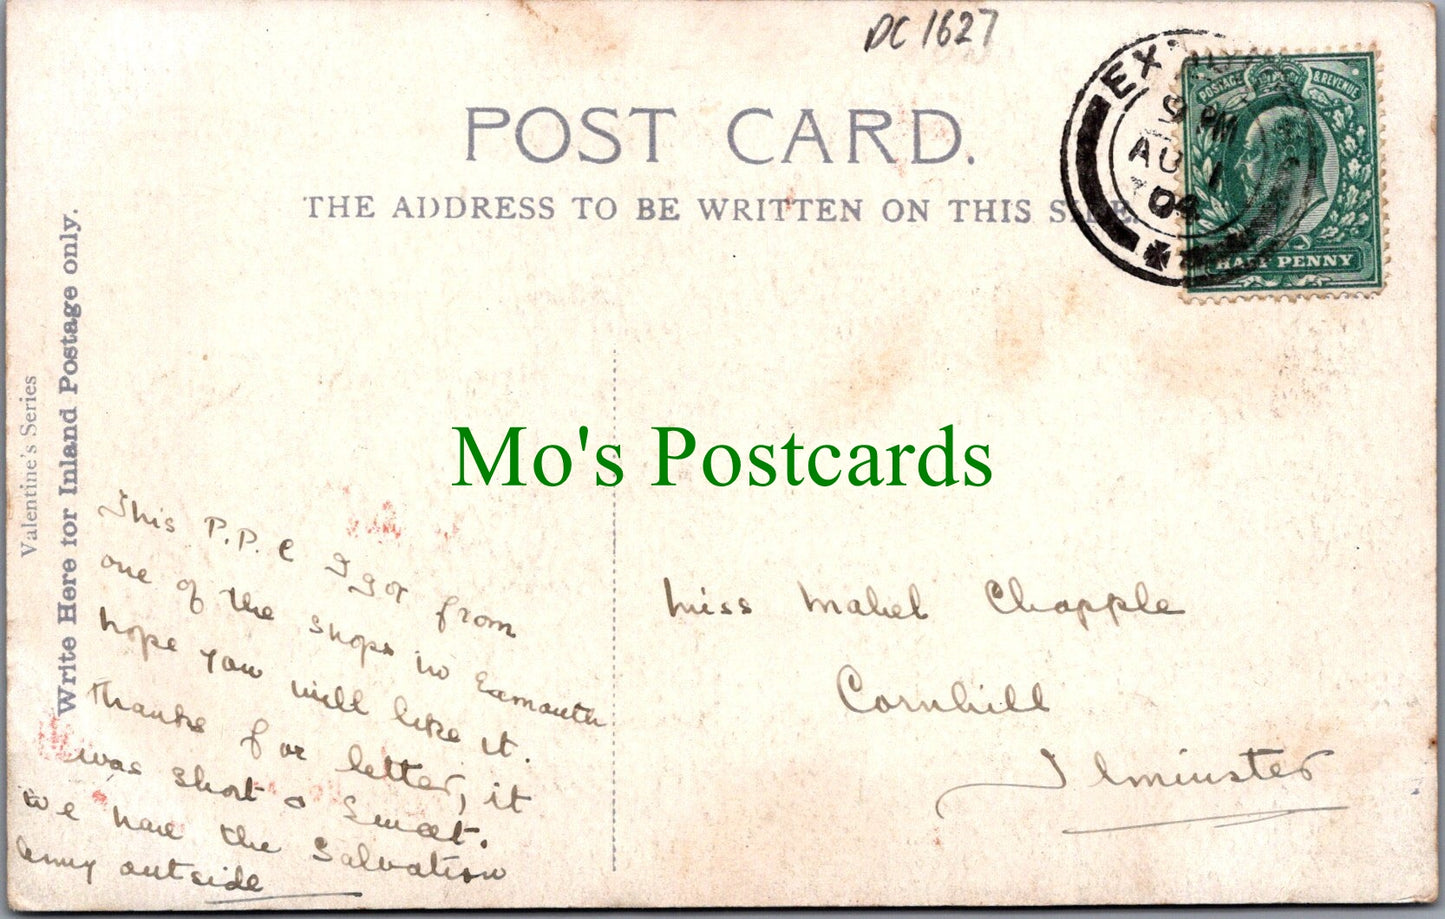 DC 1627
POST CARD.
THE ADDRESS TO BE WRITTEN ON THIS SIDE.
EXMOUTH
9 PM
AU 1
04
POSTAGE & REVENUE
HALF PENNY
Valentine's Series
Write Here for Inland Postage only.
Mo's Postcards
This P.P.C I got from
one of the shops in Exmouth
hope you will like it.
Thanks for letter, it
was short & sweet.
We have the Salvation
Army outside
Miss Mabel Chapple
Cornhill
Ilminster